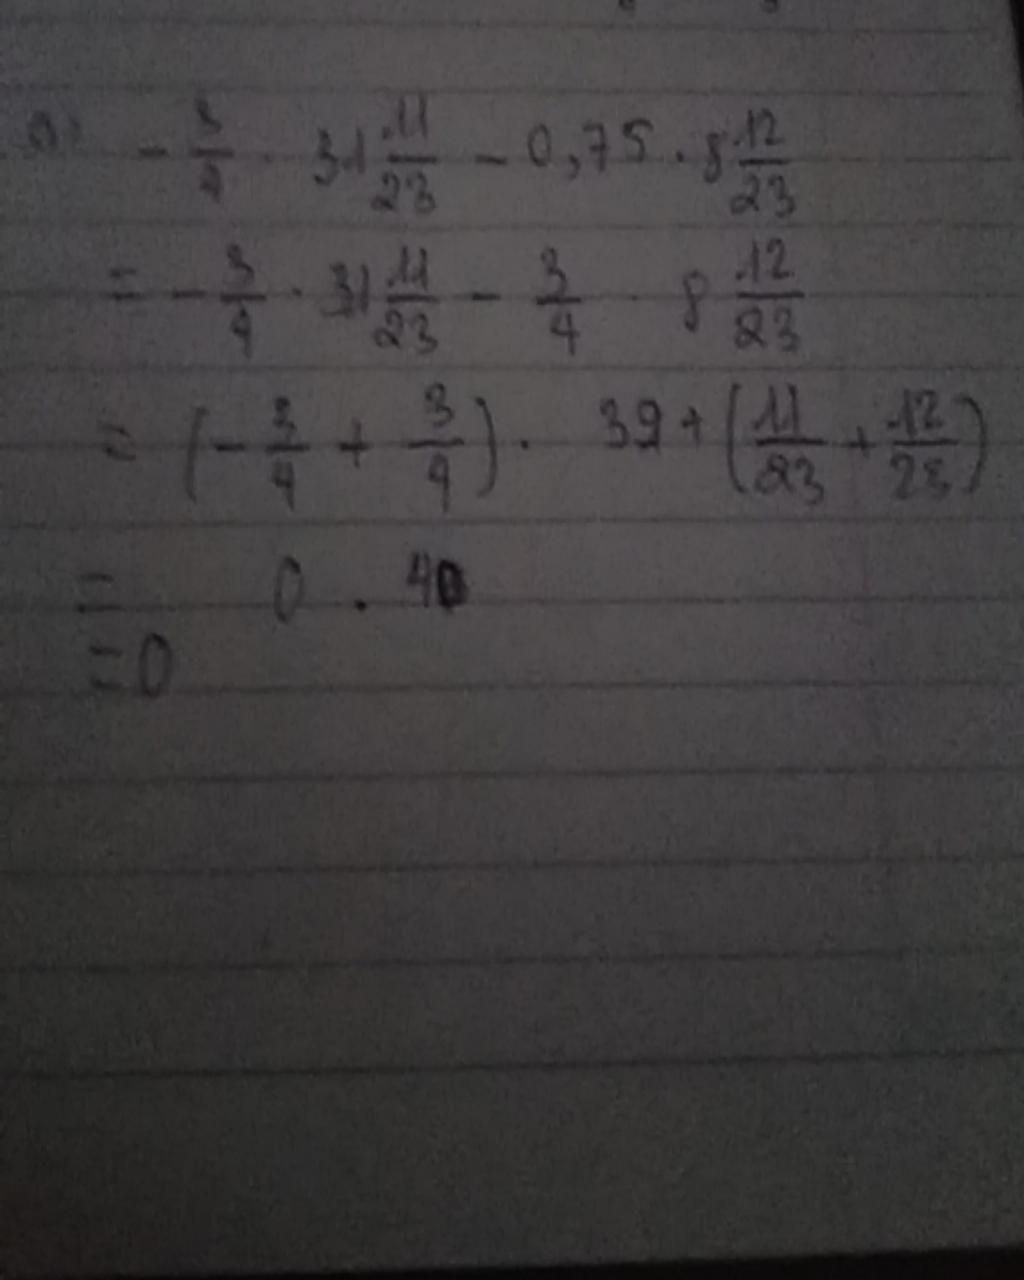 a) - 3/4 · 31 11/23 - 0,75 · 8 12/23
= - 3/4 · 31 11/23 - 3/4 · 8 12/23
= (- 3/4 + 3/4) · 39 + (11/23 + 12/23)
= 0 . 40
= 0